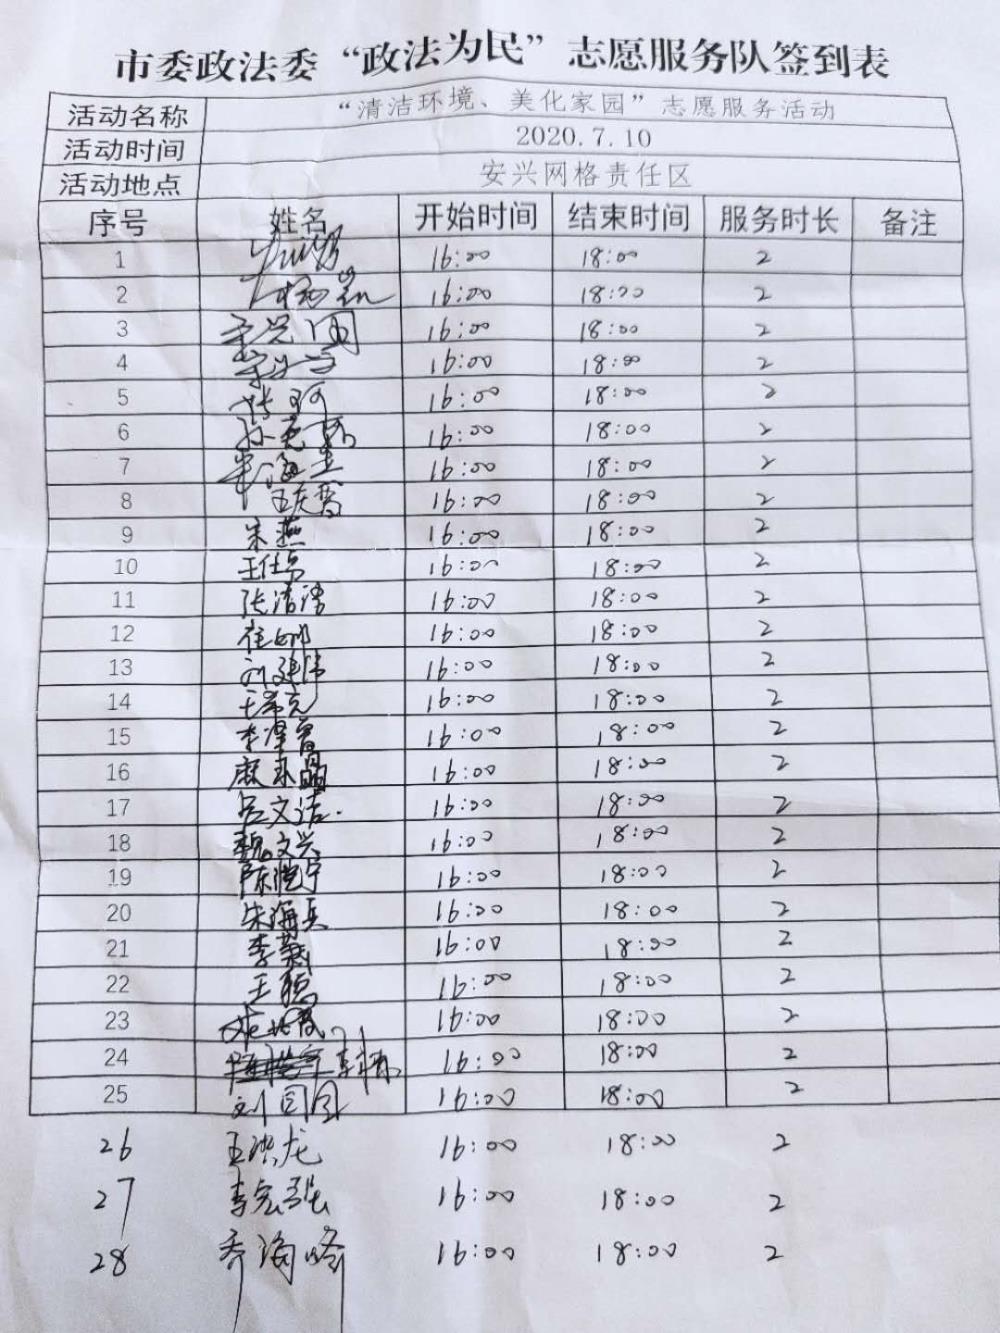 市委政法委“政法为民”志愿服务队签到表
活动名称 “清洁环境、美化家园”志愿服务活动
活动时间 2020.7.10
活动地点 安兴网格责任区
序号 姓名 开始时间 结束时间 服务时长 备注
1 16:00 18:00 2
2 16:00 18:00 2
3 16:00 18:00 2
4 16:00 18:00 2
5 16:00 18:00 2
6 16:00 18:00 2
7 16:00 18:00 2
8 16:00 18:00 2
9 朱燕 16:00 18:00 2
10 16:00 18:00 2
11 张清清 16:00 18:00 2
12 崔娜 16:00 18:00 2
13 刘建伟 16:00 18:00 2
14 16:00 18:00 2
15 16:00 18:00 2
16 16:00 18:00 2
17 吕文洁 16:00 18:00 2
18 魏文兴 16:00 18:00 2
19 16:00 18:00 2
20 朱海兵 16:00 18:00 2
21 16:00 18:00 2
22 王聪 16:00 18:00 2
23 16:00 18:00 2
24 16:00 18:00 2
25 16:00 18:00 2
26 王洪龙 16:00 18:00 2
27 李宏强 16:00 18:00 2
28 乔海峰 16:00 18:00 2